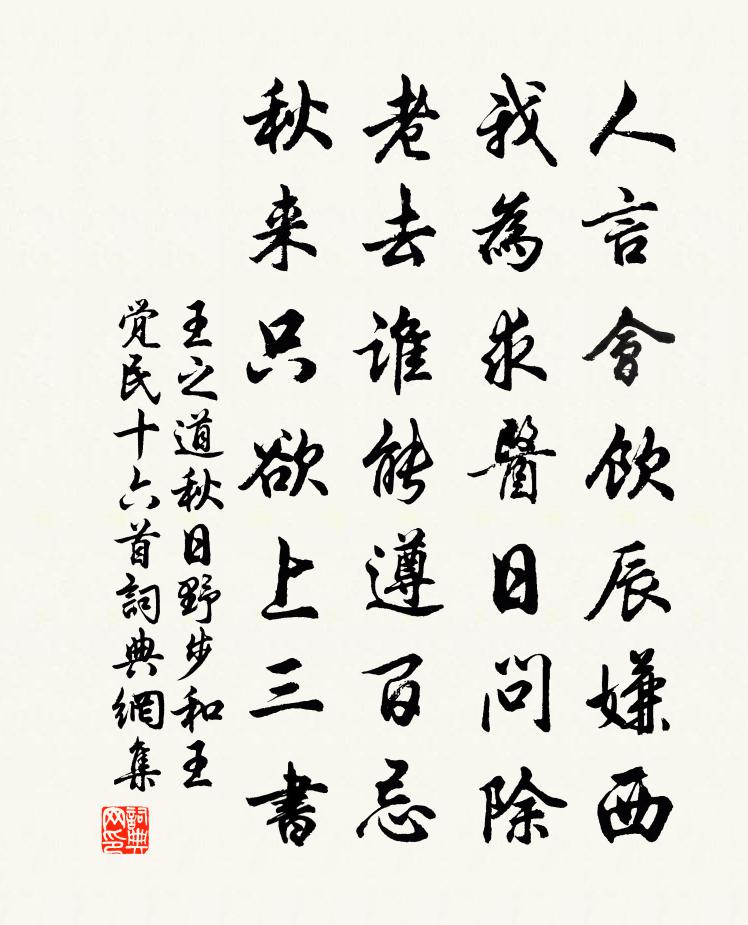 人言會飲辰嫌酉
我為求醫日問除
老去誰能遵百忌
秋来只欲上三書
王之道秋日野步和王
覚民十六首詞典網集
詞典網印